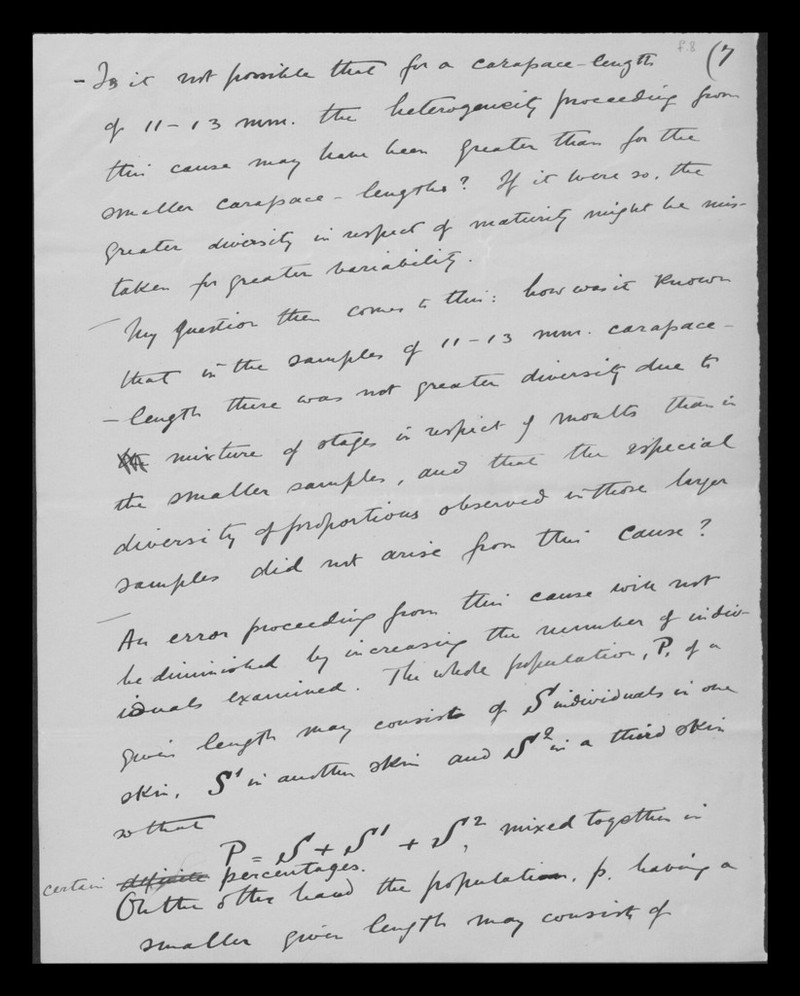 f.8 (7
- Is it not possible that for a carapace-length
of 11-13 mm. the heterogeneity proceeding from
this cause may have been greater than for the
smaller carapace-lengths? If it were so, the
greater diversity in respect of maturity might be mis-
taken for greater variability.
- My question then comes to this: how was it known
that in the samples of 11-13 mm. carapace-
- length there was not greater diversity due to
mixture of stages in respect of moults than in
the smaller samples, and that the especial
diversity of proportions observed in those larger
samples did not arise from this cause?
- An error proceeding from this cause will not
be diminished by increasing the number of indiv-
iduals examined. The whole population, P, of a
given length may consist of S individuals in one
skin, S¹ in another skin and S² in a third skin
so that
P = S + S¹ + S², mixed together in
certain definite percentages.
On the other hand the population, p. having a
smaller given length may consist of